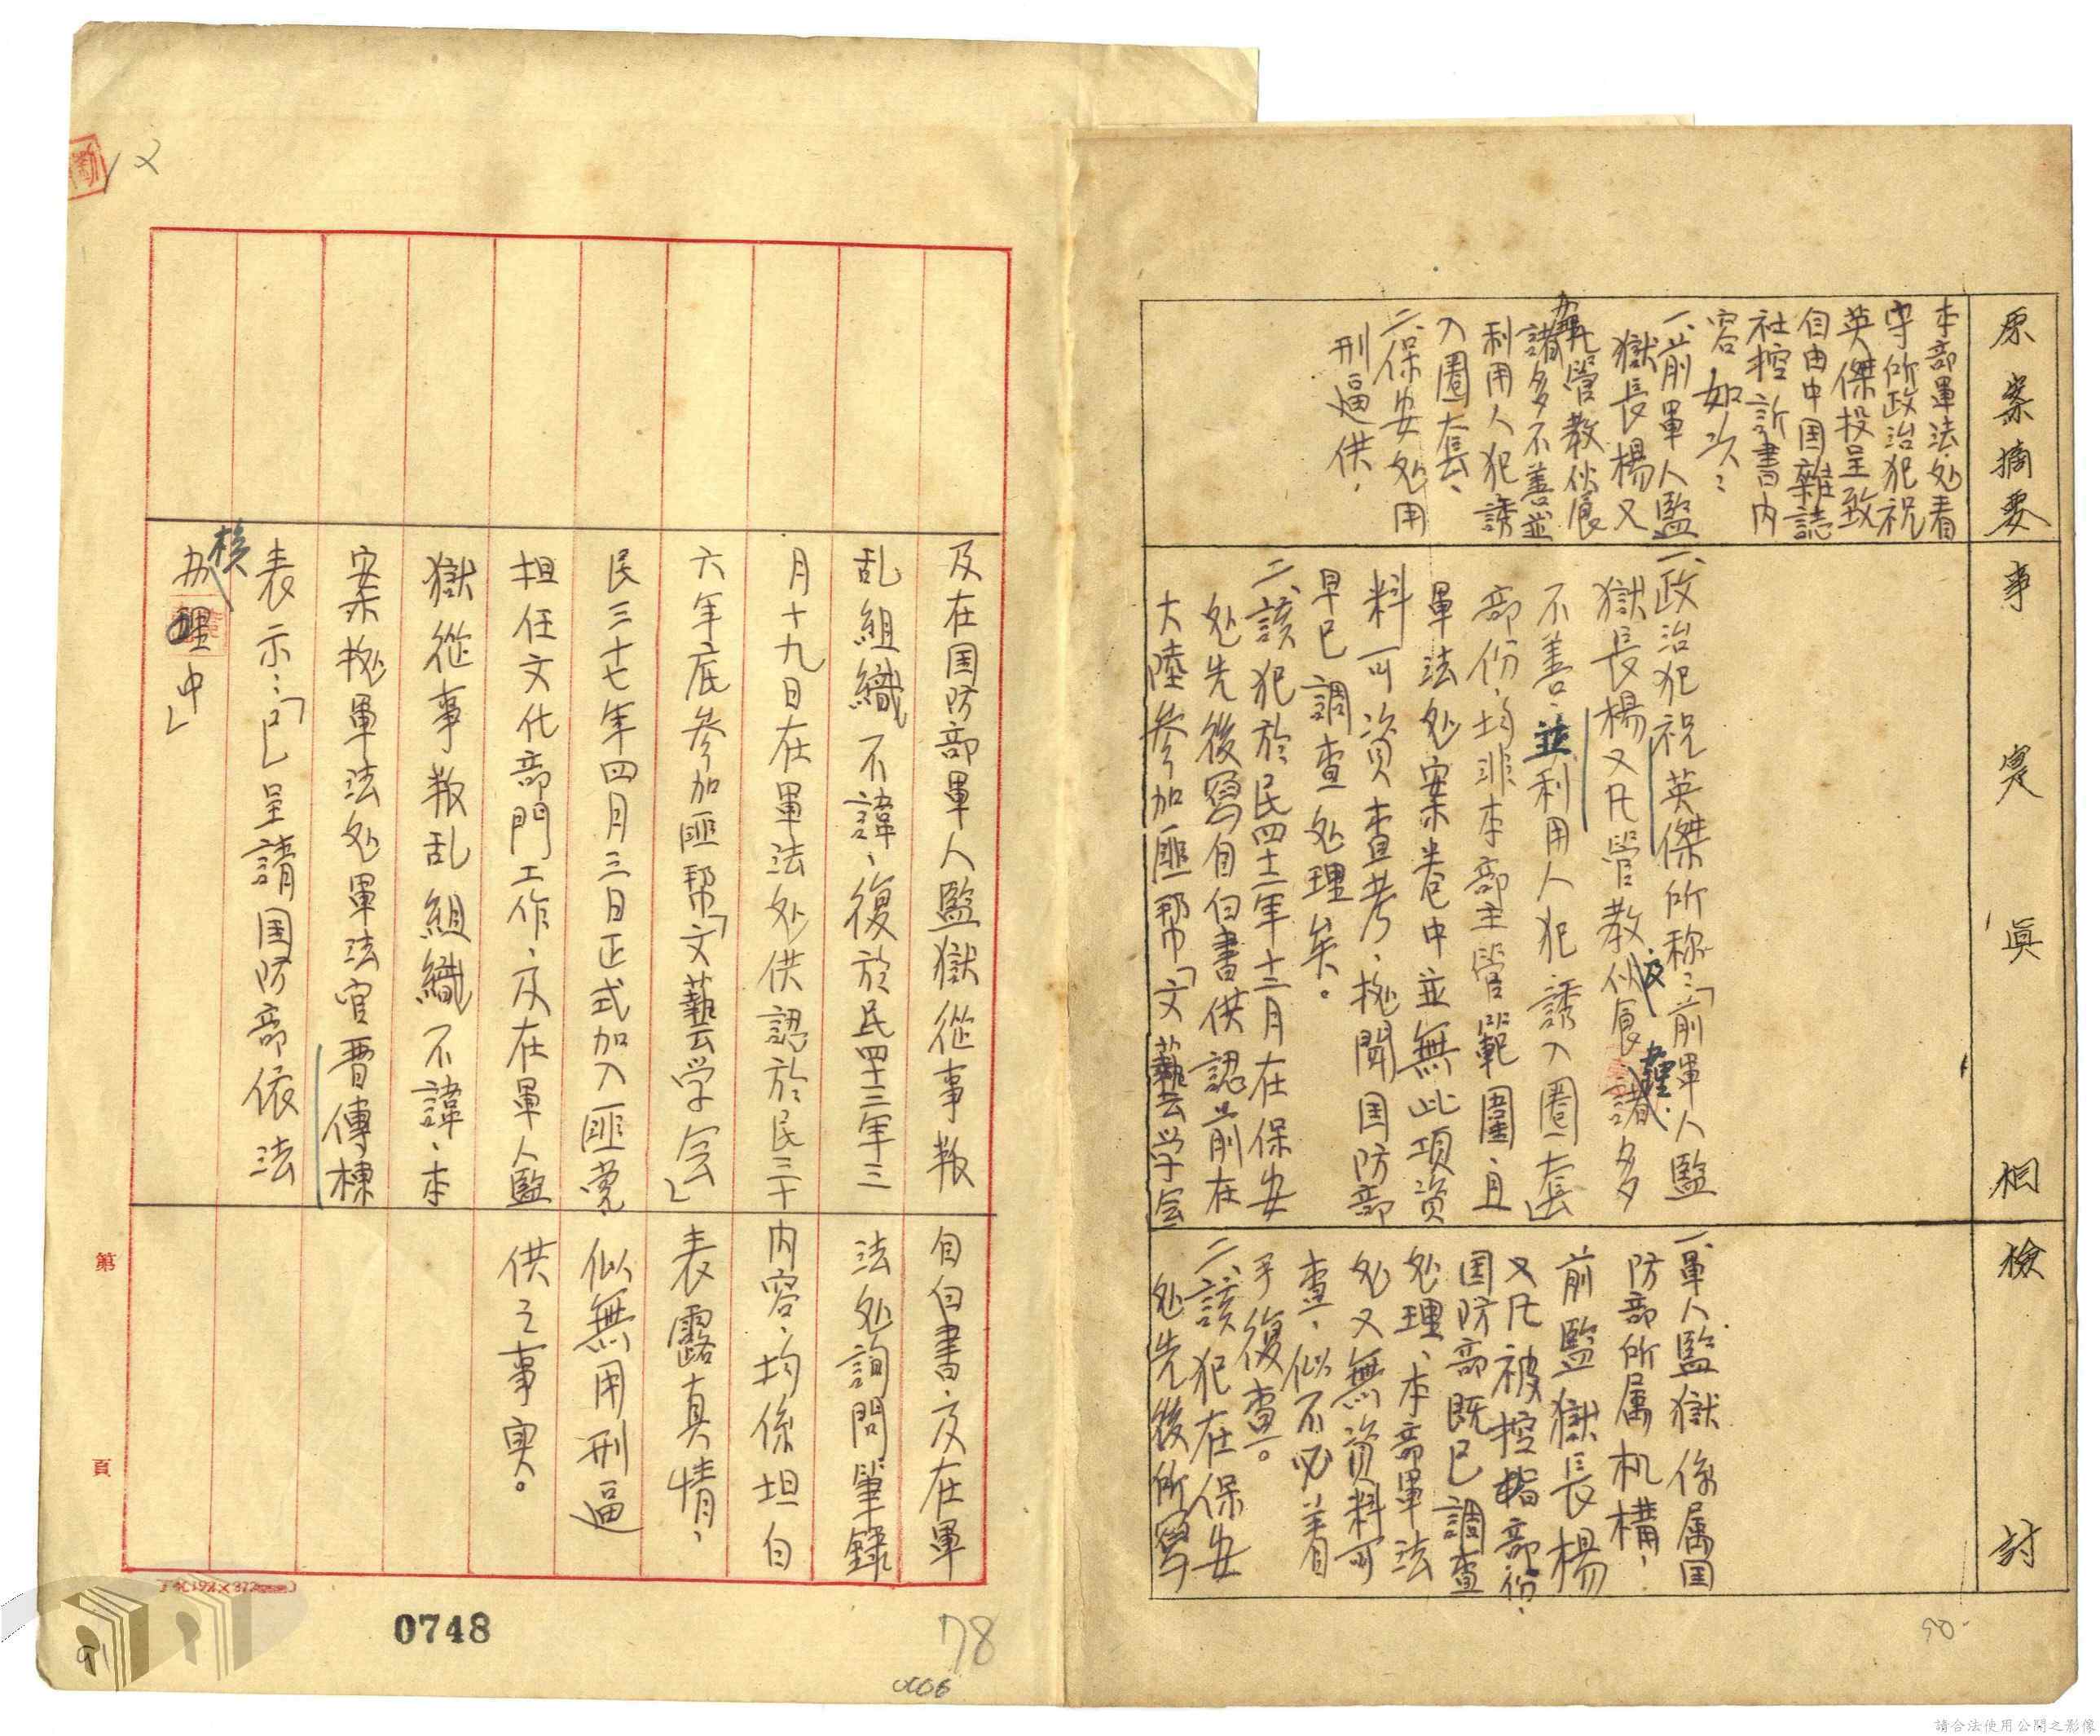 原案摘要
本部軍法処看
守所政治犯祝
英傑投呈致
自由中国雜誌
社控訴書内
容如次：
一、前軍人監
獄長楊又
凡管教伙食
辦理
諸多不善並
利用人犯誘
入圈套、
二、保安処用
刑逼供，
事實真相
一、政治犯祝英傑所称：「前軍人監
獄長楊又凡管教伙食諸多
及
辦理
不善、並利用人犯誘入圈套」
部份、均非本部主管範圍、且
軍法処案卷中並無此項資
料可資查考、拠聞国防部
早已調查処理矣。
二、該犯於民四十二年十二月在保安
処先後寫自白書供認前在
大陸參加匪幫「文藝学会」
及在国防部軍人監獄從事叛
乱組織不諱、復於民四十三年三
月十九日在軍法処供認於民三十
六年底參加匪幫「文藝学会」
民三十七年四月三日正式加入匪黨
担任文化部門工作、及在軍人監
獄從事叛乱組織不諱、本
案拠軍法処軍法官曹傳棟
表示：「已呈請国防部依法
核
办理中」
檢討
一、軍人監獄係属国
防部所属机構，
前監獄長楊
又凡被控指部份、
国防部既已調查
処理、本部軍法
処又無資料可
查，似不必着
手復查。
二、該犯在保安
処先後所寫
自白書及在軍
法処詢問筆錄
内容，均係坦白
表露真情，
似無用刑逼
供之事实。
第 頁
0748
78
0006
90-
12
請合法使用公開之影像